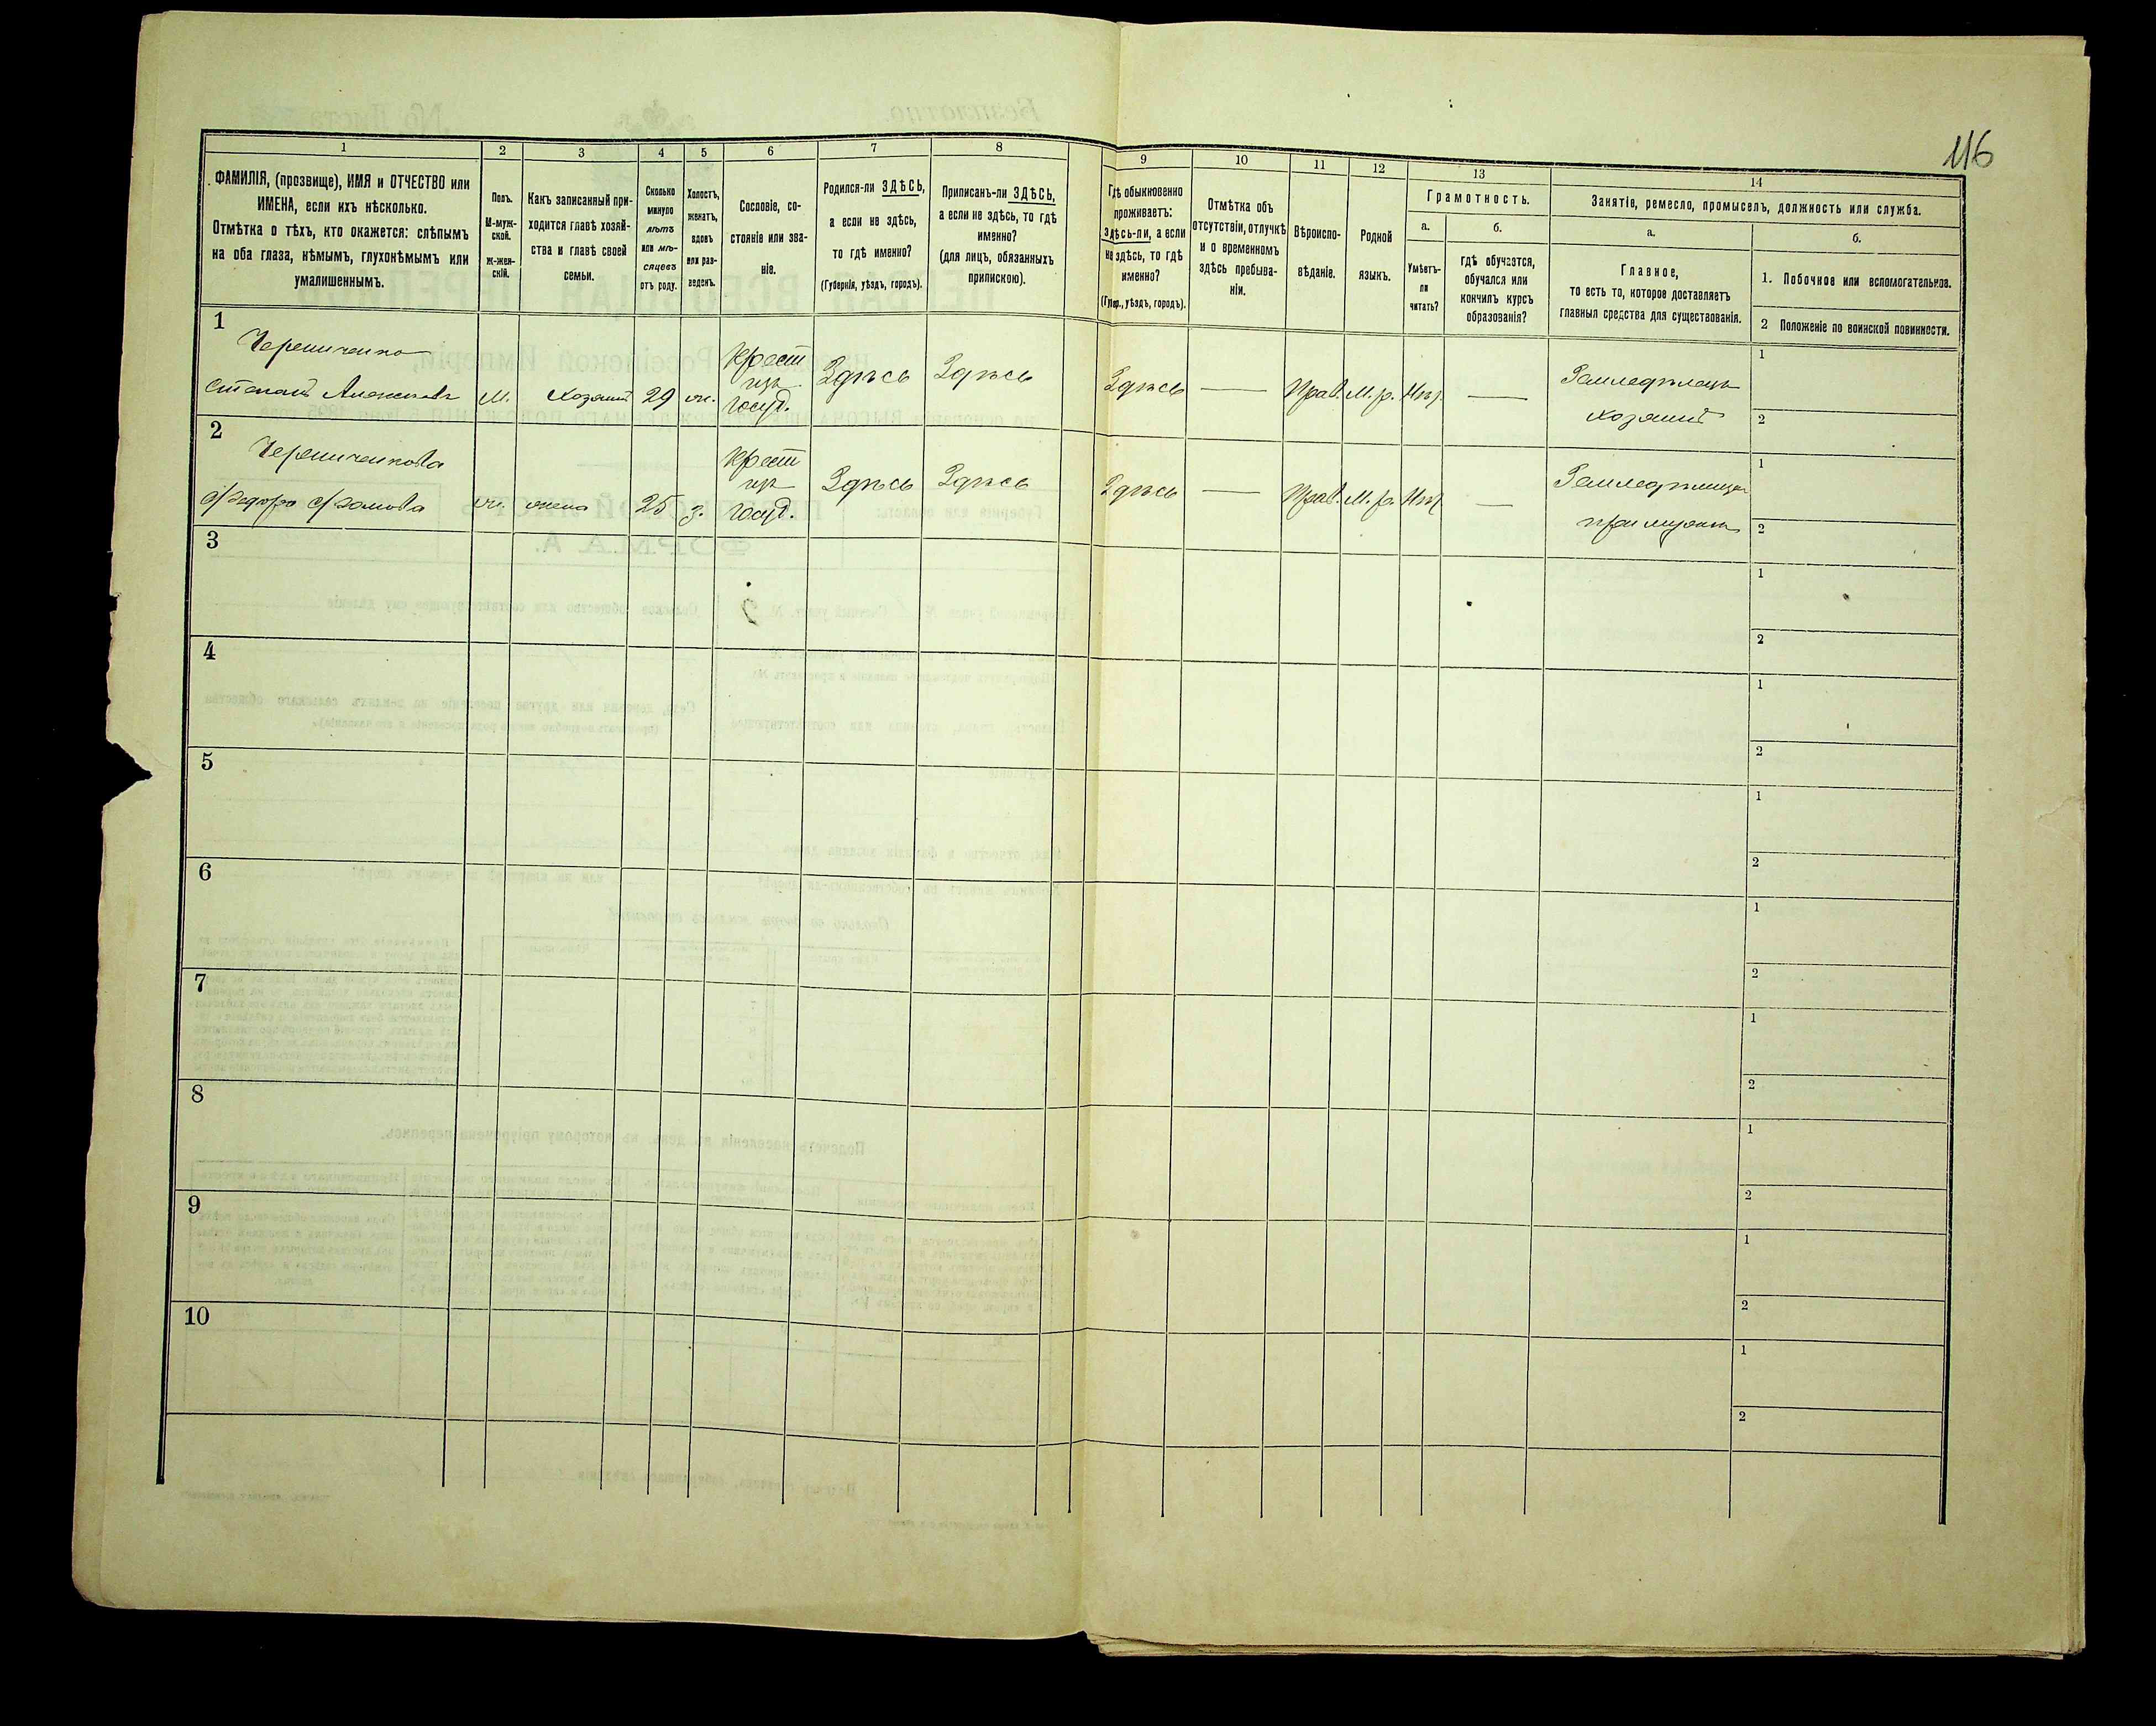 116
1 2 3 4 5 6 7 8 9 10 11 12 13 14
ФАМИЛІЯ, (прозвище), ИМЯ и ОТЧЕСТВО или
ИМЕНА, если ихъ нѣсколько.
Отмѣтка о тѣхъ, кто окажется: слѣпымъ
на оба глаза, нѣмымъ, глухонѣмымъ или
умалишеннымъ.
Полъ.
М-муж-
ской.
Ж-жен-
скій.
Какъ записанный при-
ходится главѣ хозяй-
ства и главѣ своей
семьи.
Сколько
минуло
лѣтъ
или мѣ-
сяцевъ
отъ роду.
Холостъ,
женатъ,
вдовъ
или раз-
веденъ.
Сословіе, со-
стояніе или зва-
ніе.
Родился-ли ЗДѢСЬ,
а если не здѣсь,
то гдѣ именно?
(Губернія, уѣздъ, городъ).
Приписанъ-ли ЗДѢСЬ,
а если не здѣсь, то гдѣ
именно?
(для лицъ, обязанныхъ
припискою).
Гдѣ обыкновенно
проживаетъ:
здѣсь-ли, а если
не здѣсь, то гдѣ
именно?
(Губер., уѣздъ, городъ).
Отмѣтка объ
отсутствіи, отлучкѣ
и о временномъ
здѣсь пребыва-
ніи.
Вѣроиспо-
вѣданіе.
Родной
языкъ.
Грамотность.
а.
Умѣетъ-
ли
читать?
б.
гдѣ обучается,
обучался или
кончилъ курсъ
образованія?
Занятіе, ремесло, промыселъ, должность или служба.
а.
Главное,
то есть то, которое доставляетъ
главныя средства для существованія.
б.
1. Побочное или вспомогательное.
2 Положеніе по воинской повинности.
1
Черниченко
Степанъ Алексѣевъ М. Хозяинъ 29 ж.
Крест
изъ
Госуд.
Здѣсь Здѣсь Здѣсь — Прав. М.р. Нѣт. —
Земледѣлецъ
хозяинъ
1
2
2
Черниченкова
Федора Фомова ж. жена 25 з.
Крест
изъ
Госуд.
Здѣсь Здѣсь Здѣсь — Прав. М.р. Нѣт —
при мужѣ
1
2
3
1
2
4
1
2
5
1
2
6
1
2
7
1
2
8
1
2
9
1
2
10
1
2